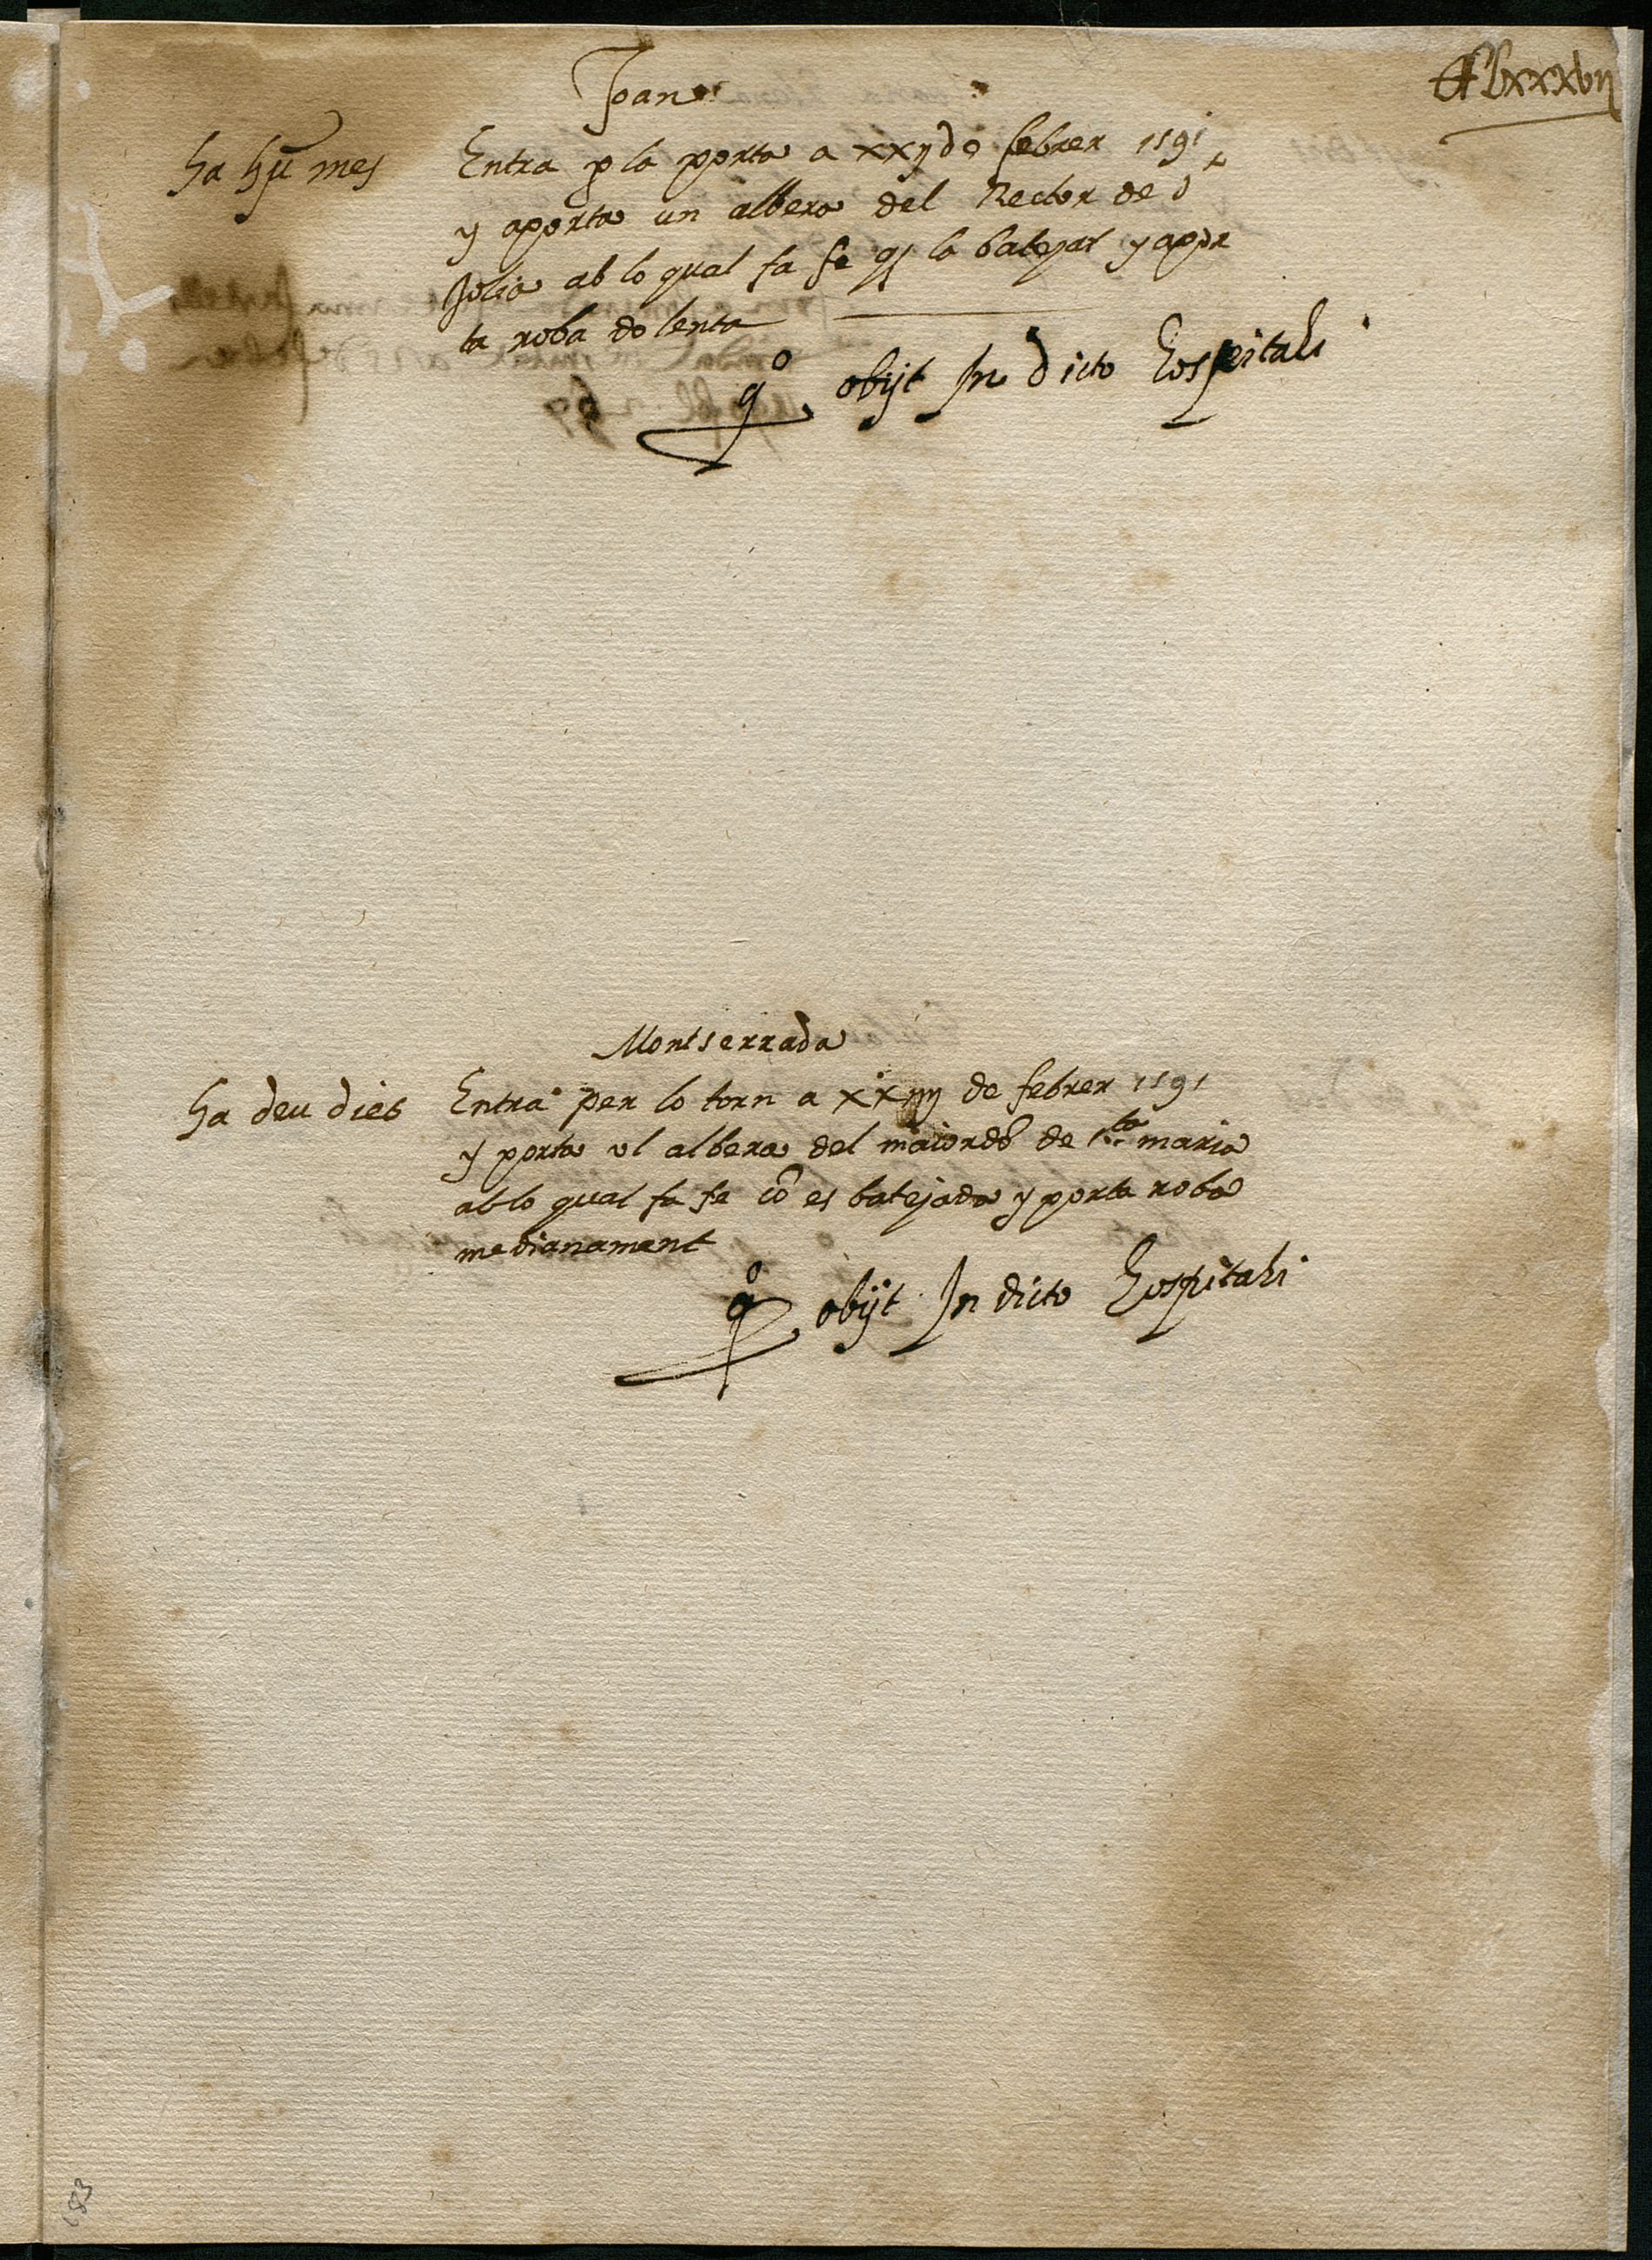 Joan
ha hū mes
Entra p la porta a xxij de febrer 1591
y aporta un albera del Rector de sᵗ
Jolia ab lo qual fa fe q̄ la batejat y apor
ta roba dolenta
qº obijt In dicto hospitali
Montserrada
ha deu dies
Entra per lo torn a xxiiij de febrer 1591
y porta vl albera del maiordō de sᵗᵃ maria
ab lo qual fa fe cō es batejada y porta roba
medianament
qº obijt In dicto hospitali
183